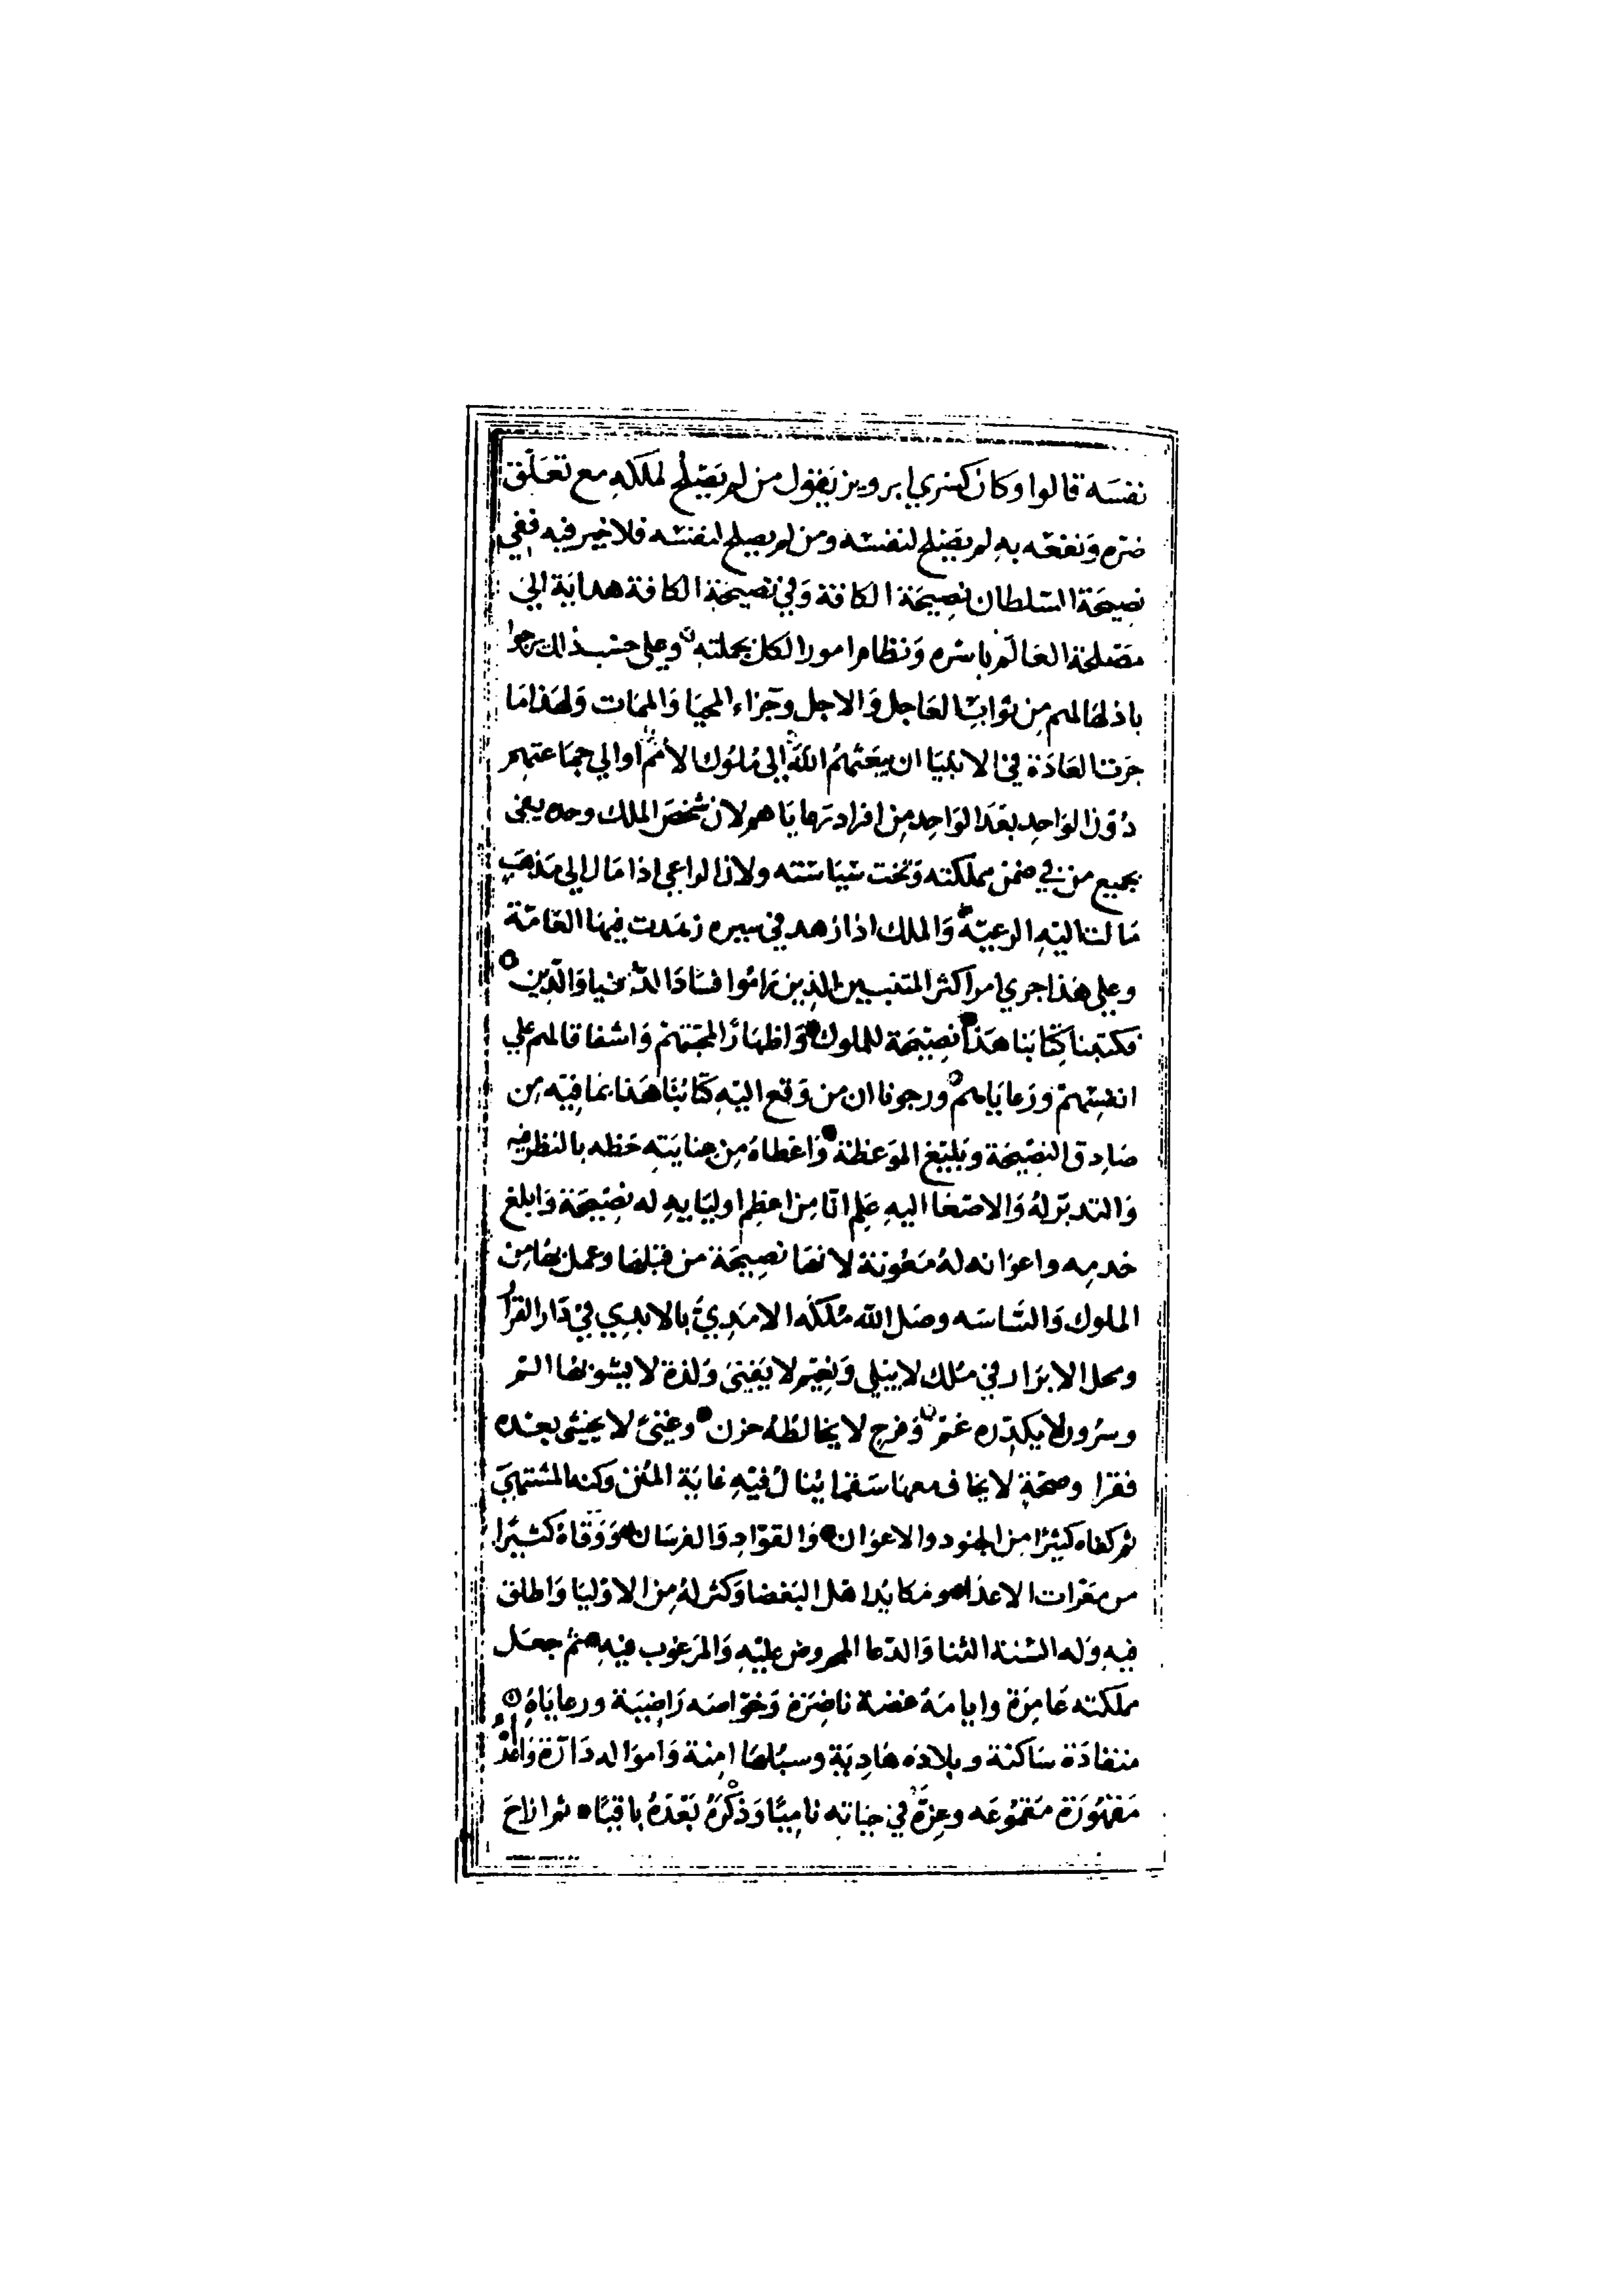 نفسَه قالوا وكان كسري ابرويز يقول من لم يَصْلُح لملكهِ مع تعَلّق
ضرّه وَنفعَه بهِ لم يَصْلح لنفسَه ومن لم يصلح لنفسَه فلا خير فيه ففي
نصيحَة السّلطان نصِيحَة الكافة وَفي نصيحَة الكافة هدايَة اليَ
مصَلحَة العَالَم باسْره وَنظام امور الكل بجملته وعلى حسْب ذلك يرجوا
باذلهَا لهم مِن ثوابِ العَاجل وَالاجل وَجزاء المحيَا وَالممَات وَلهَذا مَا
جرَت العَادَة في الانبيَا ان يبعَثهُم اللّهَ إلى مُلوُك الأمَم او الي جمَاعتهم
دُوْن الوَاحِد بعَد الوَاحِد مِن افرَاد رَعايَاهم لان شخصَ الملك وحده يعني
بجميع من في ضمن مملكته وَتحت سيَاسَته ولان الراعي اذا مَال الى مَذهبٍ
مَالت اليْهِ الرعيّة وَالملك اذا زهد في سيره زهَدت فيهَا العَامّة
وعلي هَذا جري امر اكثر المتنبيين الذِين رَامُوا فسَادَ الدّنيا وَالدّين
فكتبنا كِتابَنا هَذا نصِيْحَة للملوك وَاظهَارًا لمحبّتهمْ وَاشفاقا لهم علي
انفسِهمْ ورَعايَاهمْ ورجونا ان من وَقع اليْهِ كتَابُنَا هَذا بمَا فيْه مِن
صَادِق النصِيْحَة وَبليْغ الموَعظة وَاعْطاهُ مِن عنايَتهِ حَظه بالنظر فيه
وَالتدبّر لهُ وَالاصْغا اليهِ عَلِم انّا مِن اعظم اوليَايهِ له نصِيْحَة وَابلغ
خدمِه واعوَانه لهُ مَعُونة لانهَا نصِيحَة من قبلهَا وعمل بهَا مِن
الملوك وَالسَّاسَه وصَل اللّه مُلكَه الامَدِيَّ بالابدِي فيْ دَار القرَار
ومحل الابرَار في مُلك لا يبْلي وَنعِيْم لا يَفنيَ وَلذة لا يشوبهَا الم
وسرُور لا يكدِره غمّ وَفرح لا يخالطهُ حزن وغِنيً لا يخشَى بعْده
فقرا وصحّةٍ لا يخاف معهَا سَقما يُنال فيْهِ غايَة المُنى وكنه المشتهيَ
ثم كفاه كثيرًا مِن الجنود والاعوَان وَالقوّادِ وَالفرسَان وَوَقاهُ كثيْرًا
من معَرات الاعدَاء ومَكايْد اهْل البَغضا وَكثر لهُ مِن الاوْليَا وَاطلق
فيهِ وَله السْنة الثنا وَالدّعا المحروص عليْهِ وَالمرَغوب فيْهِ ثم جعَل
مملكته عَامِرَة وايامَهُ غضة ناضِرَة وَخوّاصَه رَاضِيَة ورعايَاهُ
منقادَة سَاكنة وبلادَه هَادِيَة وسبُلهَا امِنة وَاموَاله دَارّة وَاعْدَاؤُهُ
مَقهُورَة مَقمُوعَه وعِزّهَ في حيَاته نامِيًا وَذكْرَهُ بَعْدَهُ باقيًا ثم ازَاحَ